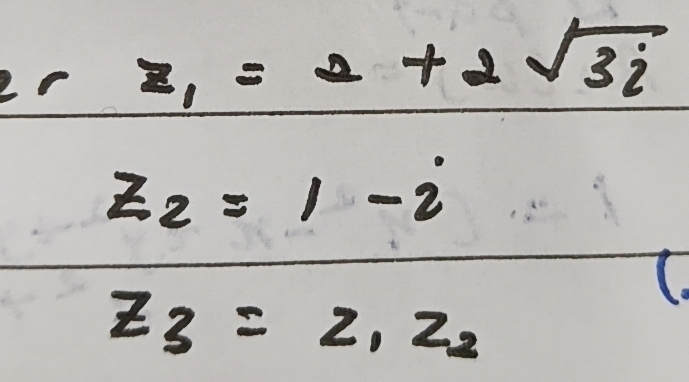 er z₁ = 2 + 2 √3i
z₂ = 1 - i
z₃ = z₁ z₂